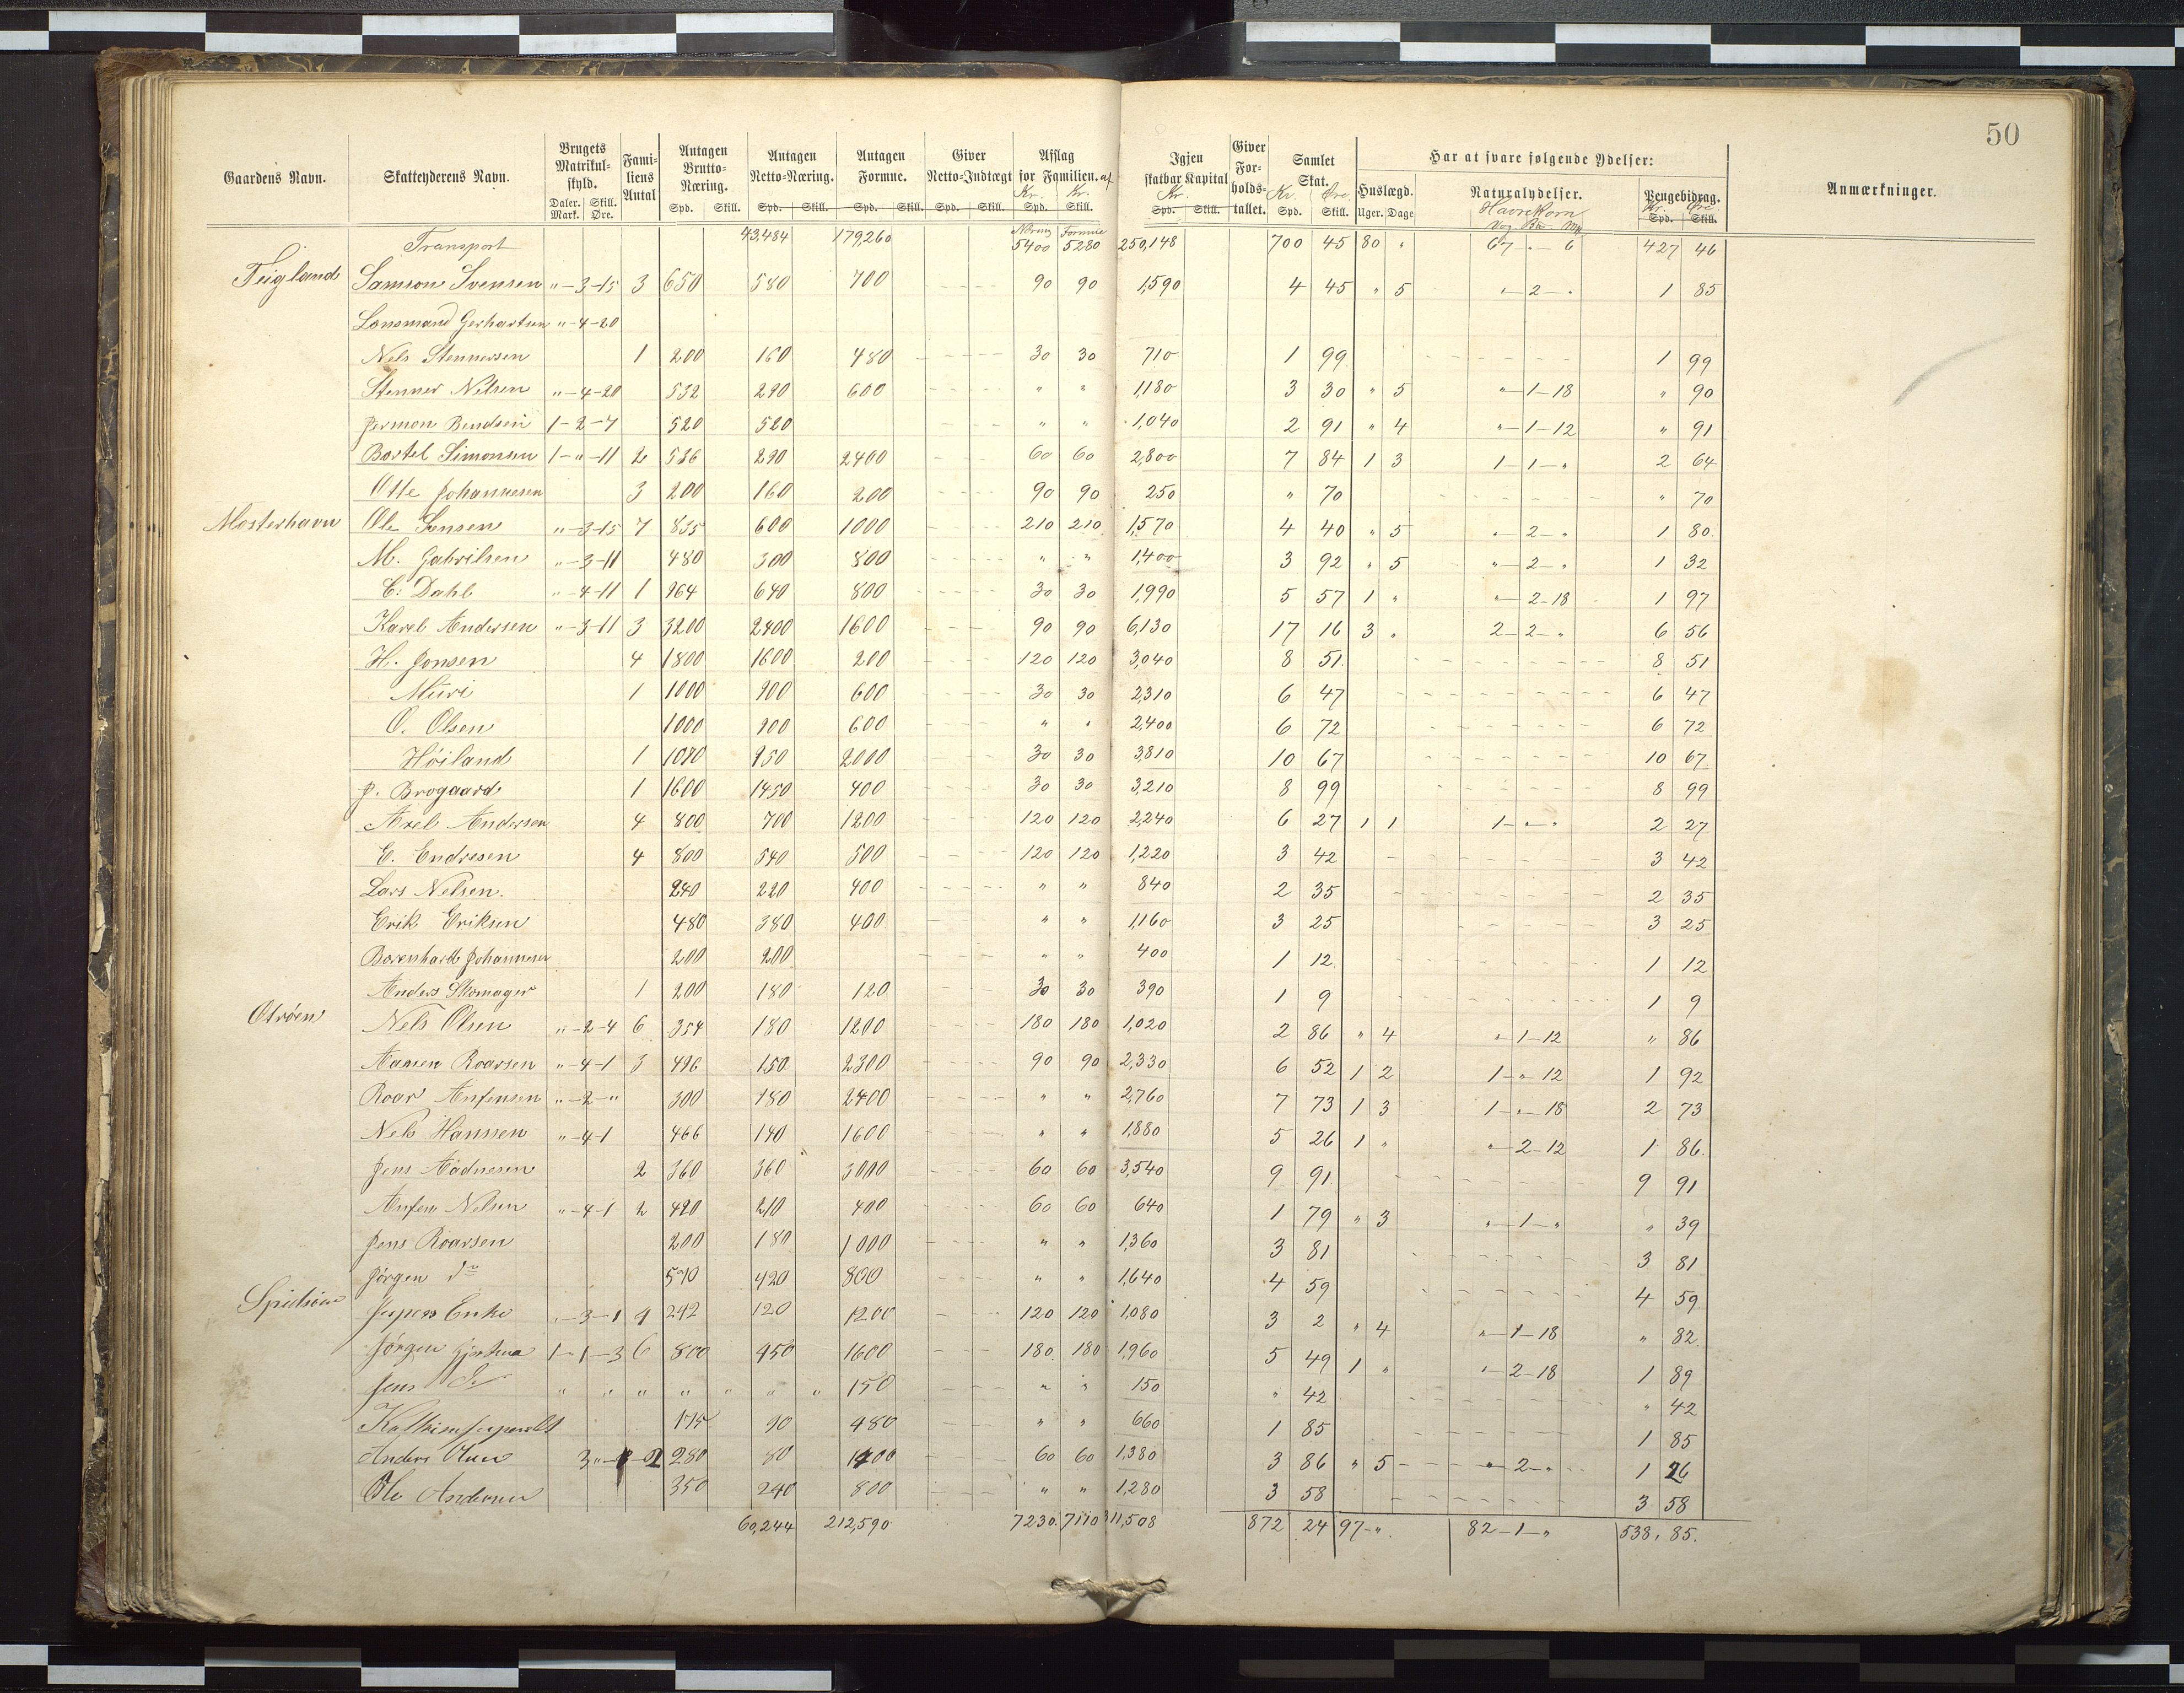 50
Gaardens Navn. Skatteyderens Navn. Brugets Matrikul-skyld. Daler. Mark. Skill. Øre. Fami-liens Antal Antagen Brutto-Næring. Spd. Skill. Antagen Netto-Næring. Spd. Skill. Antagen Formue. Spd. Skill. Giver Netto-Indtægt Spd. Skill. Afslag for Familien. af Kr. Kr. Spd. Skill. Igjen skatbar Kapital Kr. Spd. Skill. Giver For-holds-tallet. Samlet Skat. Kr. Øre. Spd. Skill. Har at svare følgende Ydelser: Huslægd. Uger. Dage Naturalydelser. Havrekorn Vog Bs Mk Pengebidrag. Kr. Øre Spd. Skill. Anmærkninger.
Transport 43,484 179260 Næring 5400 Formue 5280 250,148 700 45 80 " 67 - " - 6 427 46
Teigland Samson Svensen " - 3 - 15 3 650 580 700 90 90 1,590 4 45 " 5 " - 2 - " 1 85
Lansmand Gerhartsen " - 4 - 20
Nels Stennersen 1 200 160 480 30 30 710 1 99 1 99
Stenner Nelsen " - 4 - 20 532 290 600 " " 1,180 3 30 " 5 " - 1 - 18 " 90
Jermon Bendsen 1 - 2 - 7 520 520 " " 1,040 2 91 " 4 " - 1 - 12 " 91
Bortel Simonsen 1 - " - 11 2 536 290 2400 60 60 2,800 7 84 1 3 1 - 1 - " 2 64
Otte Johannesen 3 200 160 200 90 90 250 " 70 " 70
Mosterhavn Ole Jensen " - 3 - 15 7 835 600 1000 210 210 1,570 4 40 " 5 " - 2 - " 1 80
M. Gabrilsen " - 3 - 11 480 300 800 " " 1,400 3 92 " 5 " - 2 - " 1 32
C. Dahl " - 4 - 11 1 964 640 800 30 30 1,990 5 57 1 " " - 2 - 18 1 97
Karel Andersen " - 3 - 11 3 3200 2400 1600 90 90 6,130 17 16 3 " 2 - 2 - " 6 56
H. Jonsen 4 1800 1600 200 120 120 3,040 8 51 8 51
Muri 1 1000 900 600 30 30 2,310 6 47 6 47
O. Olsen 1000 900 600 " " 2,400 6 72 6 72
Høiland 1 1090 950 2000 30 30 3,810 10 67 10 67
J. Brogaard 1 1600 1450 400 30 30 3,210 8 99 8 99
Axel Andersen 4 800 700 1200 120 120 2,240 6 27 1 1 1 - " - " 2 27
E. Endresen 4 800 540 500 120 120 1,220 3 42 3 42
Lars Nelsen. 240 220 400 " " 840 2 35 2 35
Erik Eriksen 480 380 400 " " 1,160 3 25 3 25
Borenhard Johannesen 200 200 " " 400 1 12 1 12
Anders Skomager 1 200 180 120 30 30 390 1 9 1 9
Otrøen Nels Olsen " - 2 - 4 6 354 180 1200 180 180 1,020 2 86 " 4 " - 1 - 12 " 86
Aamen Roarsen " - 4 - 1 3 496 150 2300 90 90 2,330 6 52 1 2 1 - " - 12 1 92
Roar Anfensen " - 2 - " 300 180 2400 " " 2,760 7 73 1 3 1 - " - 18 2 73
Nels Hanssen " - 4 - 1 466 140 1600 " " 1,880 5 26 1 " " - 2 - 12 1 86
Jens Aadnesen 2 360 360 3000 60 60 3,540 9 91 9 91
Anfen Nelsen " - 4 - 1 2 420 210 400 60 60 640 1 79 " 3 " - 1 - " " 39
Jens Roarsen 200 180 1000 " " 1,360 3 81 3 81
Jørgen do 570 420 800 " " 1,640 4 59 4 59
Spidsøen Jespers Enke " - 3 - 1 4 242 120 1200 120 120 1,080 3 2 " 4 " - 1 - 18 " 82
Jørgen Gjertsen 1 - 1 - 3 6 800 450 1600 180 180 1,960 5 49 1 " " - 2 - 18 1 89
Jens Do " " " " " " " 150 " " 150 " 42 " 42
175 90 480 " " 660 1 85 1 85
Anders Olsen 3 280 80 1400 60 60 1,380 3 86 " 5 " - 2 - " 1 26
Ole Andersen 350 240 800 " " 1,280 3 58 3 58
60,244 212,590 7230 7110 311,508 872 24 97 - " 82 - 1 - " 538, 85.